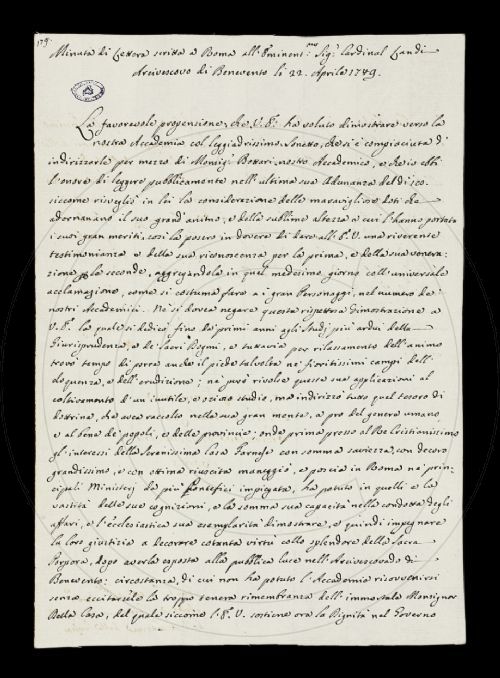 179.
Minuta di Lettera scritta a Roma all'Eminent.mo Sig.r Cardinal Landi
Arcivescovo di Benevento li 22. Aprile 1749.
La favorevole propensione, che V. E. ha voluto dimostrare verso la
nostra Accademia col leggiadrissimo Sonetto, che si è compiaciuta d'
indirizzarle per mezzo di Monsig.r Bottari nostro Accademico, e che io ebbi
l'onore di leggere pubblicamente nell'ultima sua Adunanza del dì
siccome risvegliò in lei la considerazione delle maravigliose doti che
adornavano il suo grand'animo, e della sublime altezza a cui l'hanno portato
i suoi gran meriti, così la posero in dovere di dare all'E. V. una riverente
testimonianza e della sua riconoscenza per la prima, e della sua venera-
zione per le seconde, aggregandola in quel medesimo giorno coll'universale
acclamazione, come si costuma fare a i gran Personaggi, nel numero de'
nostri Accademici. Nè si dovea negare questa rispettosa dimostrazione a
V. E. la quale si dedicò fino da' primi anni agli Studj più ardui della
Giurisprudenza, e de' sacri Dogmi, e tuttavia per rilassamento dell'animo
trovò tempo di porre anche il piede talvolta ne' fioritissimi campi dell'
eloquenza, e dell'erudizione; nè però rivolse queste sue applicazioni al
coltivamento d'un inutile, e ozioso studio, ma indirizzò tutto quel tesoro di
dottrina, che avea raccolto nella sua gran mente, a pro del genere umano
e al bene de' popoli, e delle provincie; onde prima presso al Re Cristianissimo
gl'interessi della Serenissima Casa Farnese con somma saviezza, con decoro
grandissimo, e con ottima riuscita maneggiò, e poscia in Roma ne' prin-
cipali Ministerj da più Pontefici impiegata, ha potuto in quelli e la
vastità delle sue cognizioni, e la somma sua capacità nella condotta degli
affari, e l'ecclesiastica sua esemplarità dimostrare, e quindi impegnare
la loro giustizia a decorare cotanta virtù collo splendore della Sacra
Porpora, dopo averla esposta alla pubblica luce nell'Arcivescovado di
Benevento: circostanza, di cui non ha potuto l'Accademia risovvenirsi
senza eccitarsele la troppo tenera rimembranza dell'immortale Monsignor
Della Casa, del quale siccome l'E. V. sostiene ora la Dignità nel Governo